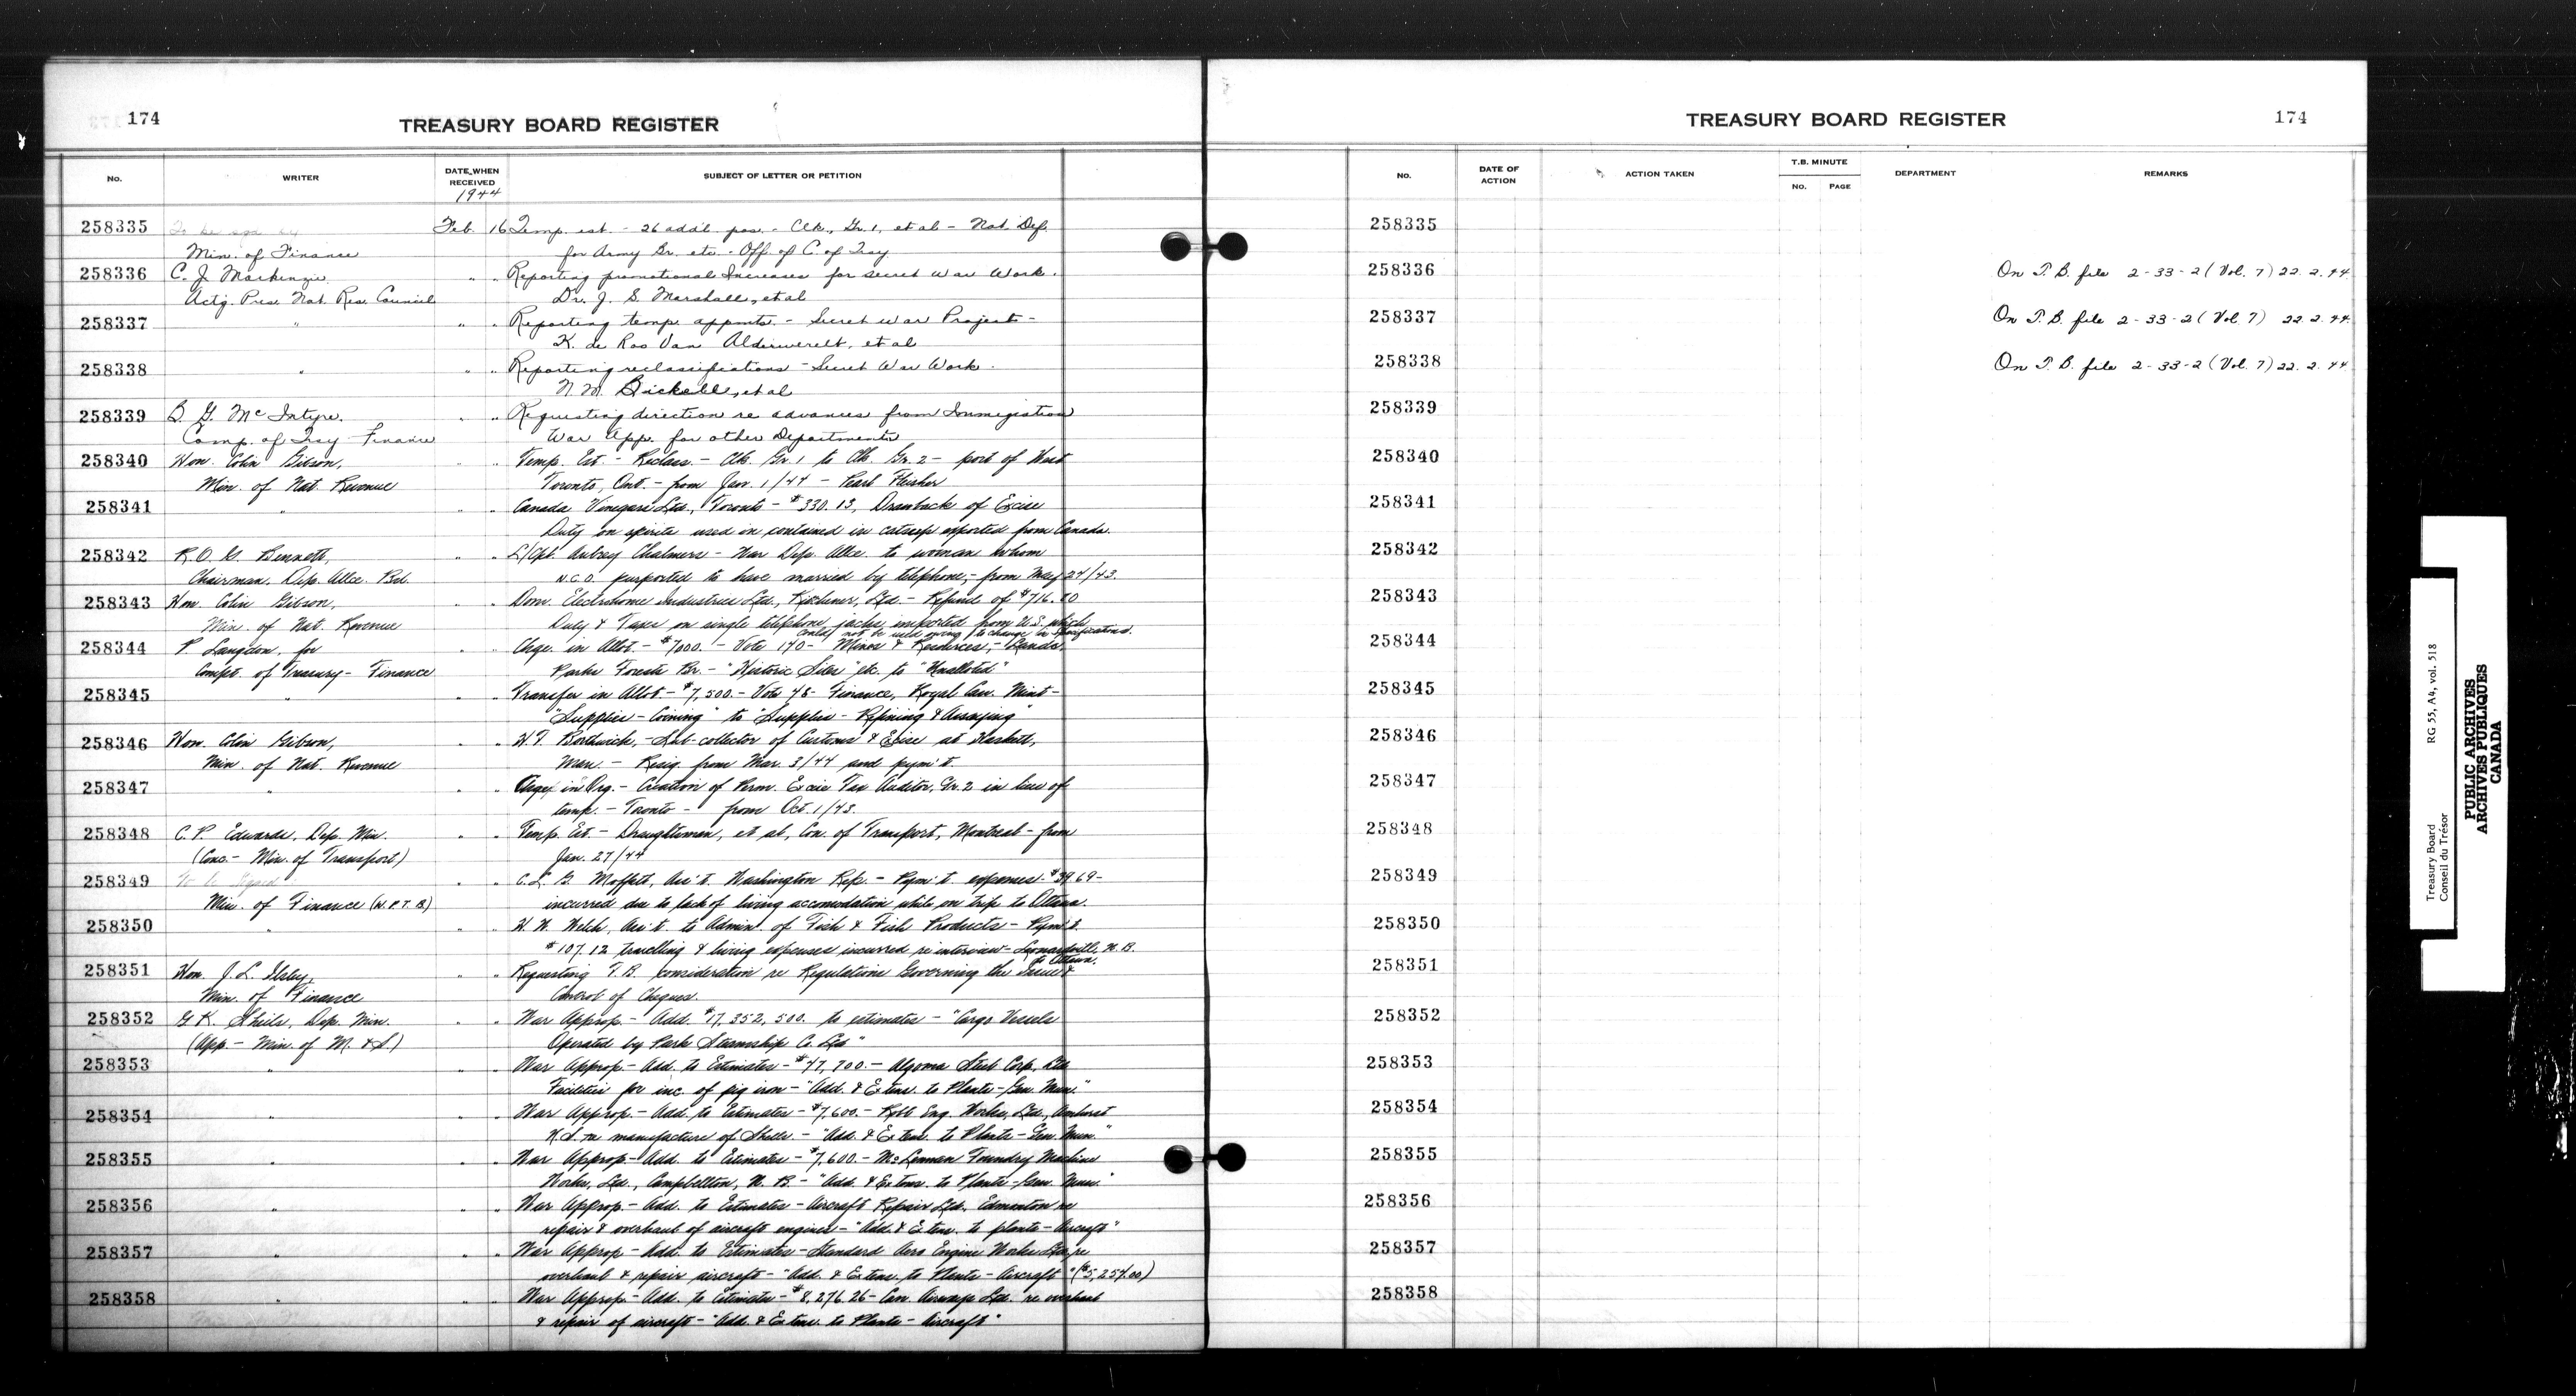 174
TREASURY BOARD REGISTER
No.
WRITER
DATE WHEN RECEIVED
1944
SUBJECT OF LETTER OR PETITION
258335 To be sgd by Feb. 16 Temp. est. - 26 add'l pos. - Clk., Gr. 1, et al - Nat. Def.
Min. of Finance for Army Br. etc. - Off. of C. of Tsy
258336 C. J. Mackenzie " " Reporting promotional Increases for secret War Work.
Actg. Pres. Nat. Res. Council Dr. J. S. Marshall, et al
258337 " " " Reporting temp. appmts. - Secret War Project -
K. de Roo Van Alderwerelt, et al
258338 " " " Reporting reclassifications - Secret War Work.
N. M. Bickell, et al
258339 B. G. McIntyre. " " Requesting direction re advances from Immigration
Comp. of Tsy - Finance War App. for other Departments
258340 Hon. Colin Gibson, " " Temp. Est. - Reclass. - Clk. Gr. 1 to Clk. Gr. 2 - port of West
Min. of Nat. Revenue Toronto, Ont. - from Jan. 1/44 - Pearl Flesher
258341 " " " Canada Vinegars Ltd., Toronto - $330.13, Drawback of Excise
Duty on spirits used in contained in catsup exported from Canada.
258342 R. O. G. Bennett, " " L/Cpl. Aubrey Chalmers - War Dep. Allce. to woman whom
Chairman, Dep. Allce. Bd. N.C.O. purported to have married by telephone, - from May 24/43.
258343 Hon. Colin Gibson, " " Dom. Electrohome Industries Ltd., Kitchener, Ltd. - Refund of $716.80
Min. of Nat. Revenue Duty & Taxes on single telephone jacks imported from U.S. which
could not be used owing to change in specifications.
258344 P. Langdon, for " " Chge. in Allot. - $7000. - Vote 170 - Mines & Resources, - Lands,
Compt. of Treasury - Finance Parks Forests Br. - "Historic Sites" etc. to "Unalloted"
258345 " " " Transfer in Allot. - $7,500. - Vote 48 - Finance, Royal Can. Mint -
"Supplies - Coining" to "Supplies - Refining & Assaying"
258346 Hon. Colin Gibson, " " W. T. Borthwick, - Sub-collector of Customs & Excise at Haskett,
Min. of Nat. Revenue Man. - Resig. from Mar. 3/44 and pym't.
258347 " " " Chge. in Org. - Creation of Perm. Excise Tax Auditor, Gr. 2 in lieu of
temp. - Toronto - from Oct. 1/43.
258348 C. P. Edwards, Dep. Min. " " Temp. Est. - Draughtsman, et al, Con. of Transport, Montreal - from
(Conc. - Min. of Transport) Jan. 27/44
258349 To be signed " " C. L. G. Moffett, Ass't. Washington Rep. - Pym't. expenses $39.69 -
Min. of Finance (W.P.T.B.) incurred due to lack of living accomodation while on trip to Ottawa.
258350 " " " W. W. Welch, Ass't. to Admin. of Fish & Fish Products - Pym't.
$107.12 travelling & living expenses incurred re interview - Leonardville, N.B.
to Ottawa.
258351 Hon. J. L. Ilsley, " " Requesting T.B. consideration re Regulations Governing the Issue &
Min. of Finance Control of Cheques.
258352 G. K. Sheils, Dep. Min. " " War Approp. - Add. $17,352,500. to estimates - "Cargo Vessels
(App. - Min. of M. & S.) Operated by Park Steamship Co. Ltd"
258353 " " " War Approp. - Add. to Estimates - $47,700. - Algoma Steel Corp., Ltd.
Facilities for inc. of pig iron - "Add. & Extens. to Plants - Gen. Mun."
258354 " " " War Approp. - Add. to Estimates - $7,600. - Robb Eng. Works, Ltd., Amherst
N.S. re manufacture of Shells. - "Add. & Extens. to Plants - Gen. Mun."
258355 " " " War Approp. - Add. to Estimates - $7,600. - McLennan Foundry Machine
Works, Ltd., Campbellton, N.B. - "Add. & Extens. to Plants - Gen. Mun."
258356 " " " War Approp. - Add. to Estimates - Aircraft Repair Ltd. Edmonton re
repair & overhaul of aircraft engines - "Add. & Extens. to plants - Aircraft"
258357 " " " War Approp. - Add. to Estimates - Standard Aero Engine Works Ltd re
overhaul & repair aircraft - "Add. & Extens. to Plants - Aircraft" ($5,257.00)
258358 " " " War Approp. - Add. to Estimates - $8,276.26 - Can. Airways Ltd. re overhaul
& repair of aircraft - "Add. & Extens. to Plants - Aircraft"
TREASURY BOARD REGISTER
174
No.
DATE OF ACTION
ACTION TAKEN
T.B. MINUTE
No. PAGE
DEPARTMENT
REMARKS
258335
258336 On T.B. file 2-33-2 (Vol. 7) 22.2.44.
258337 On T.B. file 2-33-2 (Vol. 7) 22.2.44.
258338 On T.B. file 2-33-2 (Vol. 7) 22.2.44
258339
258340
258341
258342
258343
258344
258345
258346
258347
258348
258349
258350
258351
258352
258353
258354
258355
258356
258357
258358
Treasury Board RG 55, A4, vol. 518
Conseil du Trésor
PUBLIC ARCHIVES
ARCHIVES PUBLIQUES
CANADA